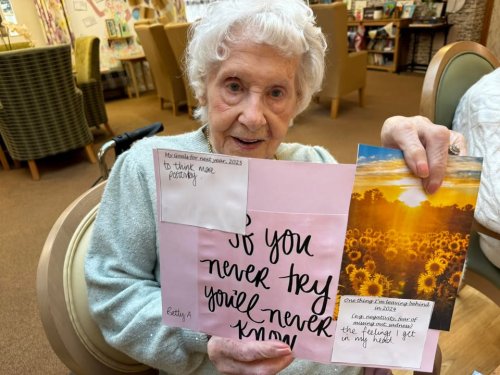 My Goals for next year, 2025
to think more
positivley
If you
never try
you'll never
know
Betty A
One thing I'm leaving behind
in 2024
(e.g. negativity, fear of
missing out, sadness)
the feelings I get
in my head.